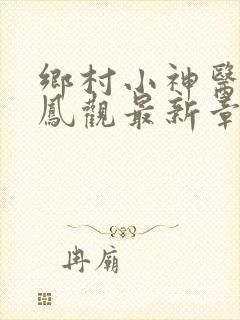 鄉村小神醫
鳳觀最新章
冉廟